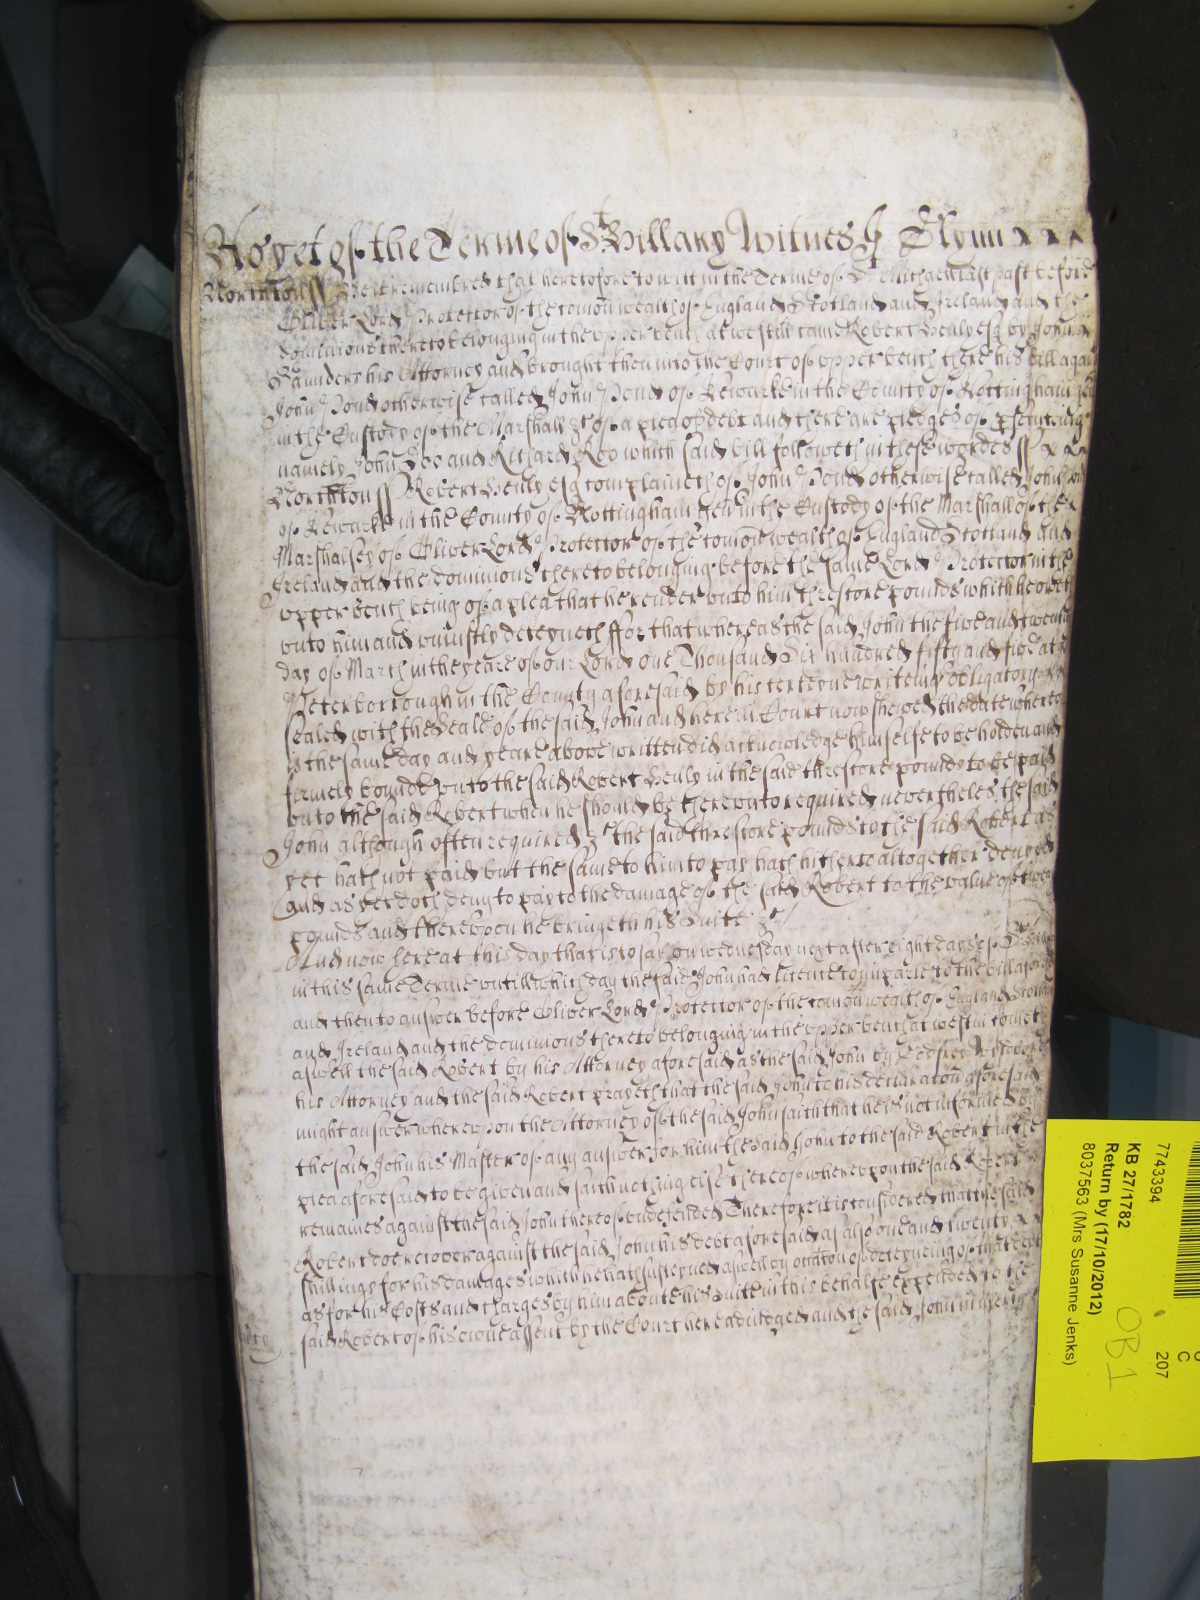 As yet of the Terme of St Hillary Witnes H Glynn
Northton ss Be it remembred that heretofore to witt in the Terme of St Michaell last past before
Oliver Lord Protector of the Comonwealth of England Scotland and Ireland and the
dominions thereto belonging in the upper bench at Westm came Robert Henly esq by John
Saunders his Attorney and brought then into the Court of upper bench there his bill against
John Pond otherwise called John Pond of Newarke in the County of Nottingham gen
in the Custody of the Marshall &c of a plea of debt and there are pledges of prosecuting
namely John Doo and Richard Roo which said bill followeth in these wordes ss
Northton ss Robert Henly esq complaineth of John Pond otherwise called John Pond
of Newarke in the County of Nottingham gen in the Custody of the Marshall of the
Marshallsey of Oliver Lord Protector of the Comonwealth of England Scotland and
Ireland and the dominions thereto belonging before the same Lord Protector in the
upper bench being of a plea that he render unto him threscore pounds which he oweth
unto him and uniustly deteyneth ffor that whereas the said John the five and twentith
day of March in the yeare of our Lord one Thousand Six hundred fifty and five att
Peterborrough in the County aforesaid by his certeyne writeing obligatory
sealed with the Seale of the said John and here in Court now shewed the date whereof
is the same day and yeare above written did acknowledge himselfe to be holden and
firmely bound unto the said Robert Henly in the said threscore pounds to be paid
unto the said Robert when he should be thereunto required nevertheles the said
John although often required &c the said threscore pounds to the said Robert as
yet hath not paid but the same to him to pay hath hitherto altogether denyed
and as yet doth deny to pay to the damage of the said Robert to the value of twenty
pounds and thereupon he bringeth his Suite &c
And now here at this day that is to say on wednesday next after eight dayes of St Hillary
in this same Terme untill which day the said John had licence to imparle to the bill aforesaid
and then to answer before Oliver Lord Protector of the Comonwealth of England Scotland
and Ireland and the dominions thereto belonging in the upper bench at westm cometh
aswell the said Robert by his Attorney aforesaid as the said John by
his Attorney and the said Robert prayeth that the said John to his declaraton aforesaid
might answer whereupon the Attorney of the said John saith that he is not informed by
the said John his Master of any answer for him the said John to the said Robert in the
plea aforesaid to be given and saith nothing else thereof whereupon the said Robert
remaines against the said John thereof undefended Therefore it is considered that the said
Robert doe recover against the said John his debt aforesaid as also one and twenty
shillings for his damages which he hath susteyned aswell by occation of deteyneing of that debt
as for his Costs and charges by him aboute his Suite in this behalfe expended to the
said Robert of his owne assent by the Court here adiudged and the said John in mercy
7743394
KB 27/1782
Return by (17/10/2012)
8037563 (Mrs Susanne Jenks)
C
207
OB1